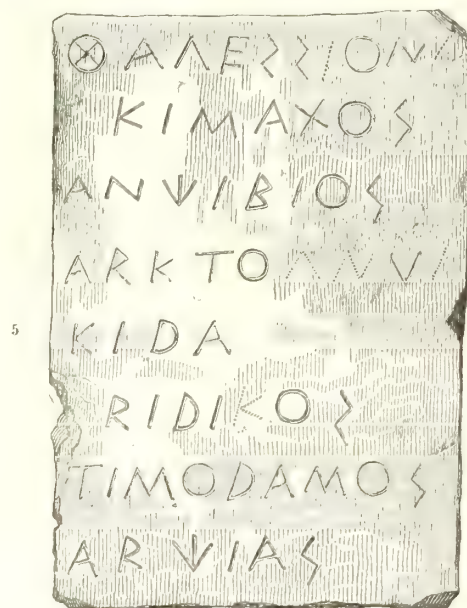 ΘΑΛΕΣΣΙΟΝ
ΚΙΜΑΧΟΣ
ΑΝΨΙΒΙΟΣ
ΑΡΚΤΟ
5 ΚΙΔΑ
ΡΙΔΙΚΟΣ
ΤΙΜΟΔΑΜΟΣ
ΑΡΨΙΑΣ